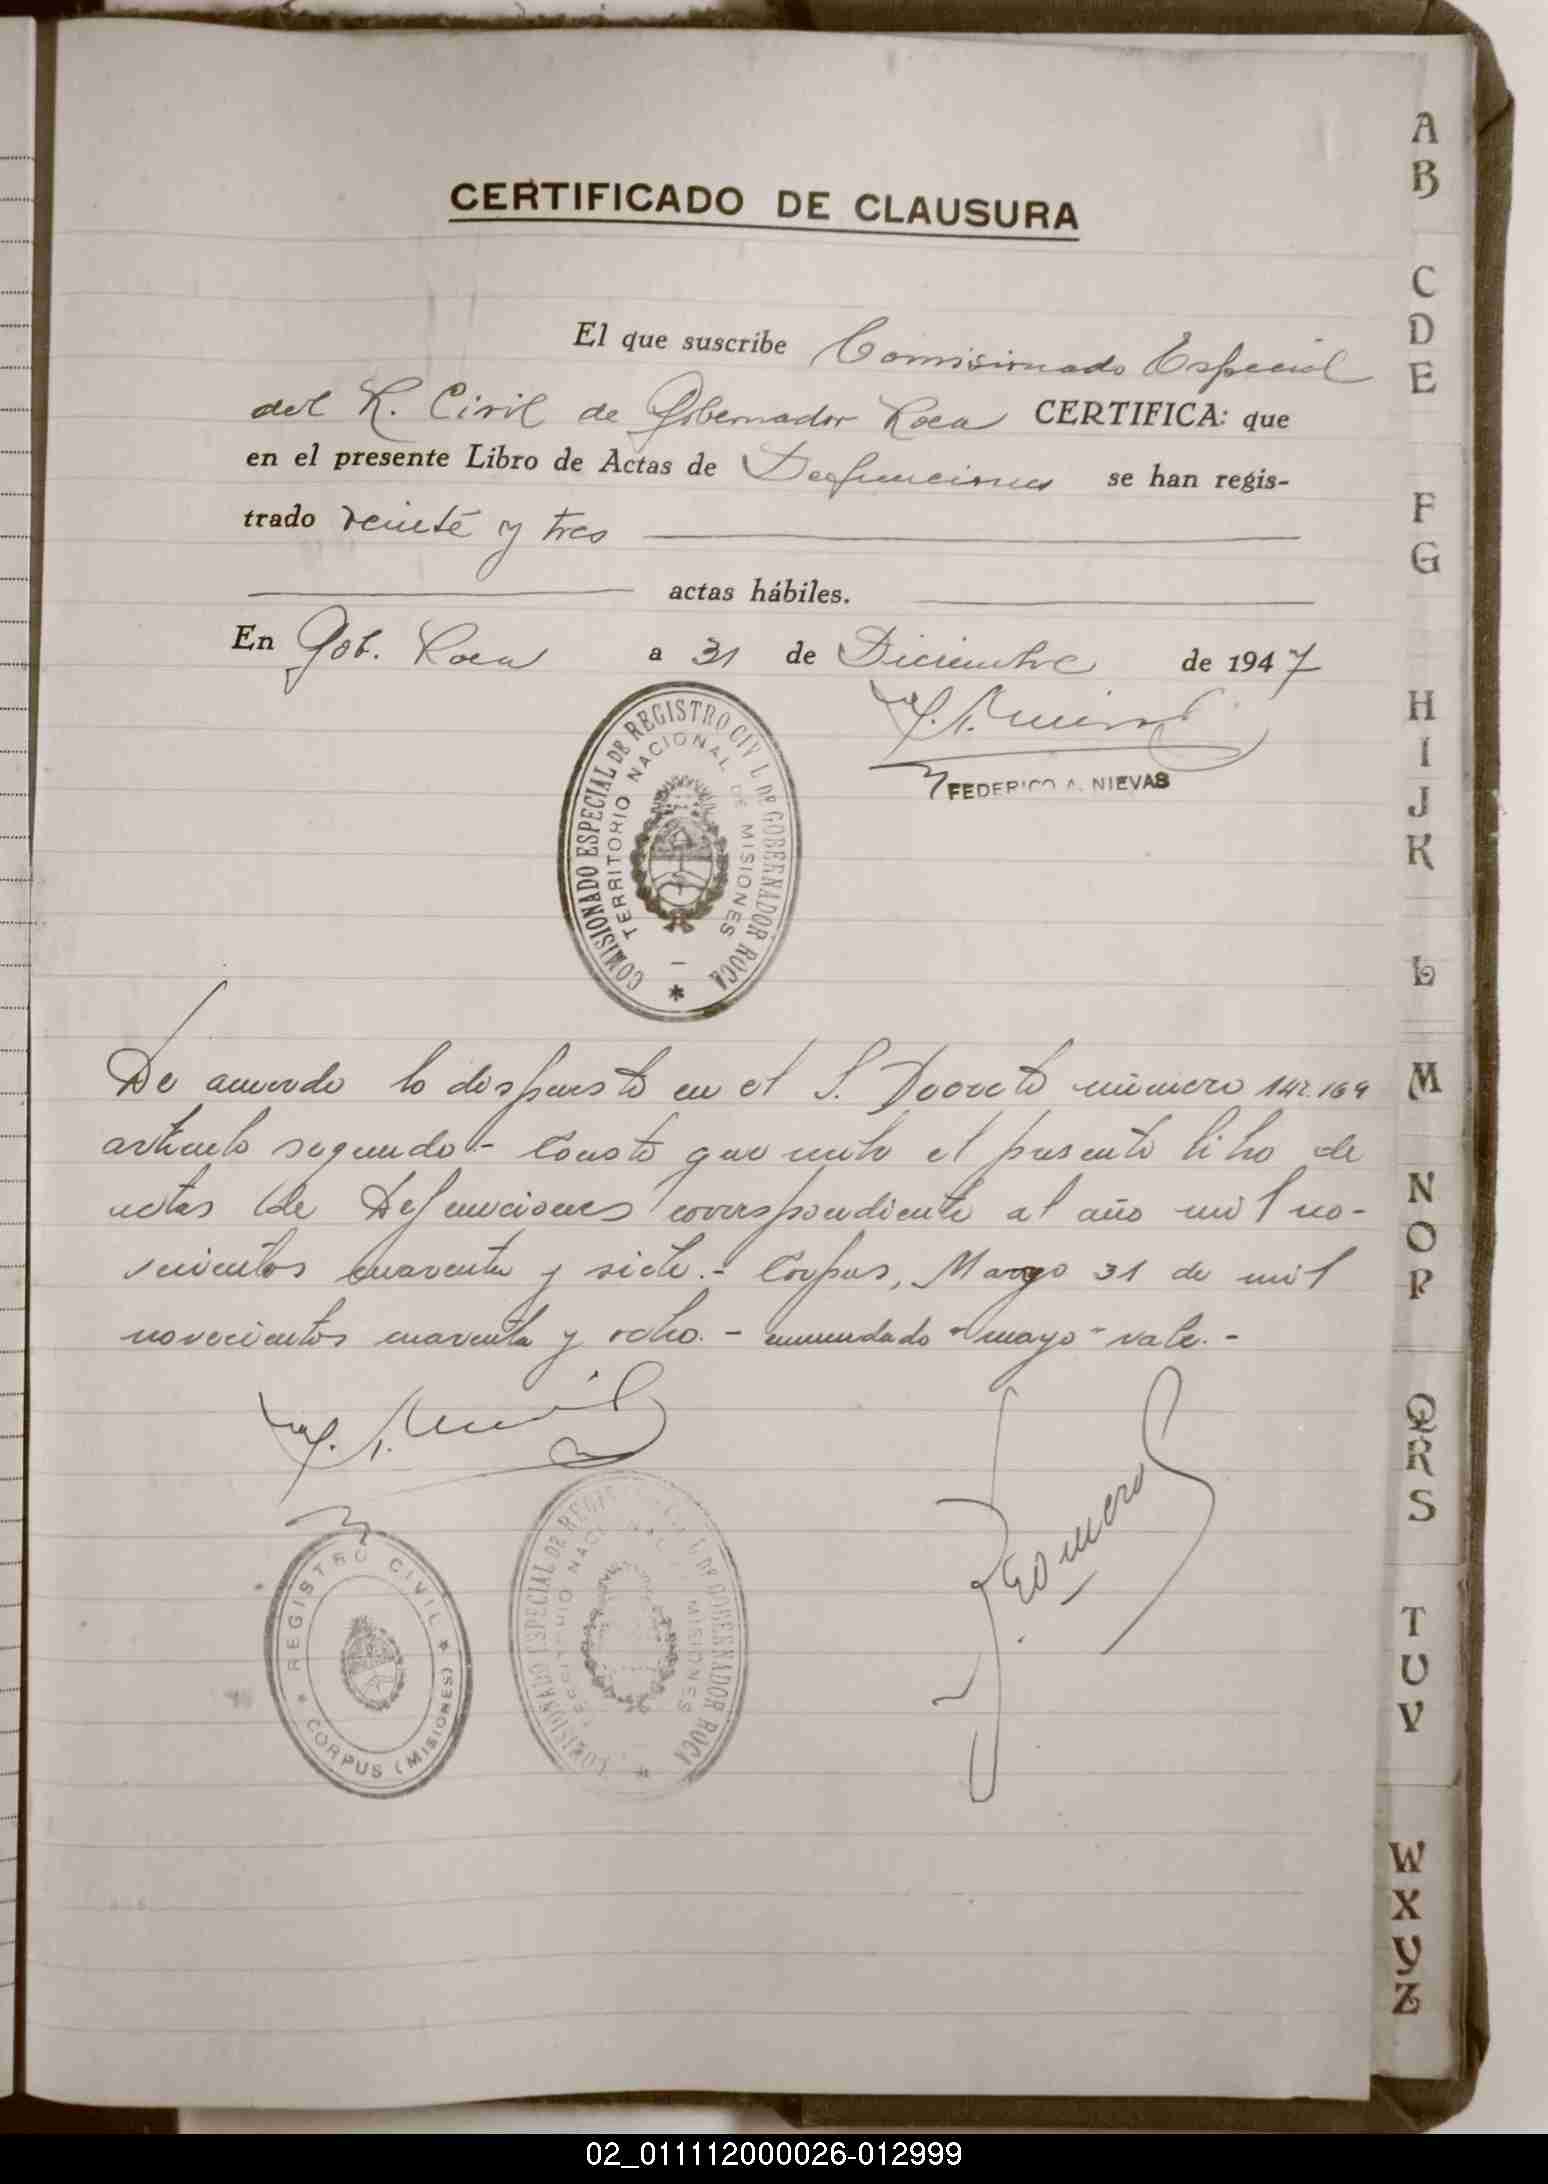 CERTIFICADO DE CLAUSURA
El que suscribe Comisionado Especial
del R. Civil de Gobernador Roca CERTIFICA: que
en el presente Libro de Actas de Defunciones se han regis-
trado veinte y tres
actas hábiles.
En Gob. Roca a 31 de Diciembre de 1947
FEDERICO A. NIEVAS
COMISIONADO ESPECIAL DE REGISTRO CIVIL DE GOBERNADOR ROCA
TERRITORIO NACIONAL DE MISIONES
De acuerdo lo dispuesto en el S. Decreto número 142.169
artículo segundo.- Consta que el presente libro de
actas de Defunciones correspondiente al año mil no-
vecientos cuarenta y siete.- Corpus, Mayo 31 de mil
novecientos cuarenta y ocho.- enmendado "mayo" vale.-
Romero
REGISTRO CIVIL
CORPUS (MISIONES)
COMISIONADO ESPECIAL DE REGISTRO CIVIL DE GOBERNADOR ROCA
TERRITORIO NACIONAL DE MISIONES
A
B
C
D
E
F
G
H
I
J
K
L
M
N
O
P
Q
R
S
T
U
V
W
X
Y
Z
02_011112000026-012999